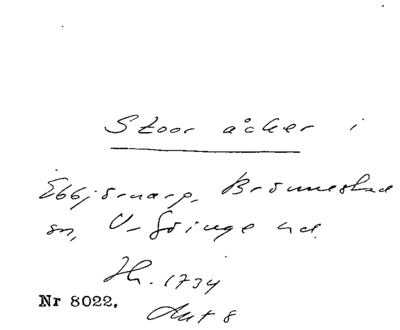 Stoor åcker i
Ebbjörnarp, Brönnestad
sn, V-Göinge hd.
Jh. 1734
Nr 8022.
Akt 8